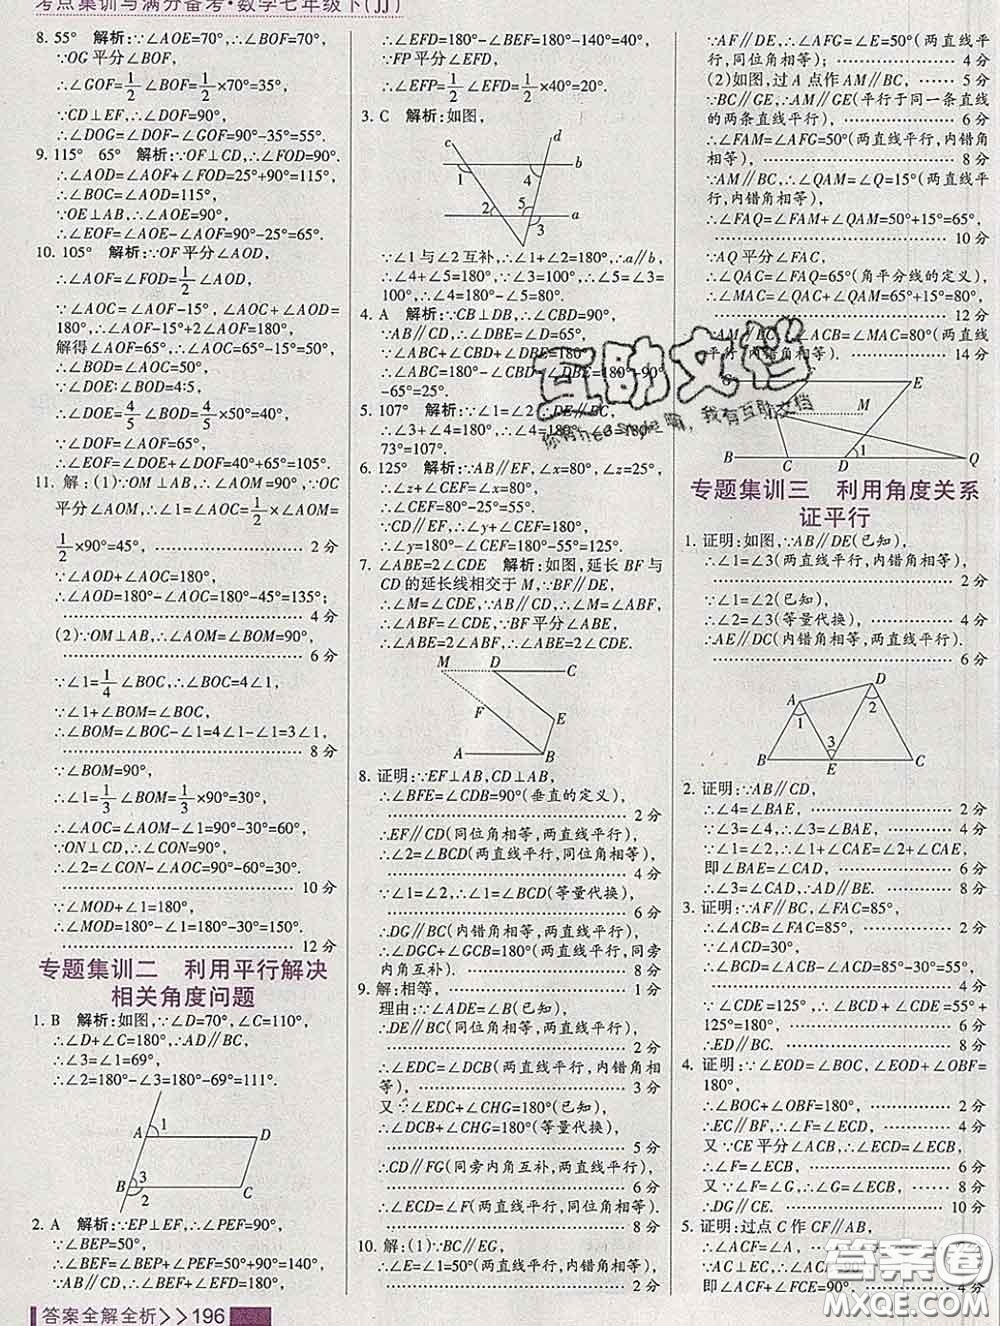 考点集训与满分备考·数学七年级下(JJ)
8. 55°　解析:∵∠AOE=70°,∴∠BOF=70°,
∵OG平分∠BOF,
∴∠GOF=1/2∠BOF=1/2×70°=35°,
∵CD⊥EF,∴∠DOF=90°,
∴∠DOG=∠DOF-∠GOF=90°-35°=55°.
9. 115°　65°　解析:∵OF⊥CD,∴∠FOD=90°.
∴∠AOD=∠AOF+∠FOD=25°+90°=115°,
∴∠BOC=∠AOD=115°,
∵OE⊥AB,∴∠AOE=90°,
∴∠EOF=∠AOE-∠AOF=90°-25°=65°.
10. 105°　解析:∵OF平分∠AOD,
∴∠AOF=∠FOD=1/2∠AOD,
∵∠AOC=∠AOF-15°,∠AOC+∠AOD=
180°,∴∠AOF-15°+2∠AOF=180°,
解得∠AOF=65°,∴∠AOC=65°-15°=50°,
∴∠BOD=50°,
∵∠DOE∶∠BOD=4∶5,
∴∠DOE=4/5∠BOD=4/5×50°=40°,
∴∠EOF=∠DOE+∠DOF=40°+65°=105°.
11. 解:(1)∵OM⊥AB,∴∠AOM=90°,∵OC
平分∠AOM,∴∠1=∠AOC=1/2∠AOM=
1/2×90°=45°, 2分
∵∠AOD+∠AOC=180°,
∴∠AOD=180°-∠AOC=180°-45°=135°;
4分
(2)∵OM⊥AB,∴∠AOM=∠BOM=90°,
6分
∵∠1=1/4∠BOC,∴∠BOC=4∠1,
∵∠1+∠BOM=∠BOC,
∴∠BOM=∠BOC-∠1=4∠1-∠1=3∠1,
8分
∵∠BOM=90°,
∴∠1=1/3∠BOM=1/3×90°=30°,
∴∠AOC=∠AOM-∠1=90°-30°=60°,
∵ON⊥CD,∴∠CON=90°,
∴∠2=∠CON-∠AOC=90°-60°=30°,
10分
∵∠MOD+∠1=180°,
∴∠MOD=180°-∠1=180°-30°=150°.
12分
专题集训二　利用平行解决
相关角度问题
1. B　解析:如图,∵∠D=70°,∠C=110°,
∴∠D+∠C=180°,∴AD∥BC,
∴∠3=∠1=69°,
∴∠2=180°-∠3=180°-69°=111°.
A 1 D
B 3 2 C
2. A　解析:∵EP⊥EF,∴∠PEF=90°,
∵∠BEP=50°,
∴∠BEF=∠BEP+∠PEF=50°+90°=140°,
∵AB∥CD,∴∠BEF+∠EFD=180°,
∴∠EFD=180°-∠BEF=180°-140°=40°,
∵FP平分∠EFD,
∴∠EFP=1/2∠EFD=1/2×40°=20°.
3. C　解析:如图,
c d
1 4 b
2 5 3 a
∵∠1与∠2互补,∴∠1+∠2=180°,∴a∥b,
∴∠4+∠5=180°,∵∠3=100°,∴∠5=∠3=
100°,∴∠4=180°-∠5=80°.
4. A　解析:∵CB⊥DB,∴∠CBD=90°,
∵AB∥CD,∴∠DBE=∠D=65°,
∵∠ABC+∠CBD+∠DBE=180°,
∴∠ABC=180°-∠CBD-∠DBE=180°-90°
-65°=25°.
5. 107°　解析:∵∠1=∠2,∴DE∥BC,
∴∠3+∠4=180°,∴∠4=180°-∠3=180°-
73°=107°.
6. 125°　解析:∵AB∥EF,∠x=80°,∠z=25°,
∴∠z+∠CEF=∠x=80°,
∴∠CEF=80°-25°=55°,
∵CD∥EF,∴∠y+∠CEF=180°,
∴∠y=180°-∠CEF=180°-55°=125°.
7. ∠ABE=2∠CDE　解析:如图,延长BF与
CD的延长线相交于M,∵BF∥DE,
∴∠M=∠CDE,∵AB∥CD,∴∠M=∠ABF,
∴∠CDE=∠ABF,∵BF平分∠ABE,
∴∠ABE=2∠ABF,∴∠ABE=2∠CDE.
M D C
F E
A B
8. 证明:∵EF⊥AB,CD⊥AB,
∴∠BFE=∠CDB=90°(垂直的定义),
2分
∴EF∥CD(同位角相等,两直线平行),
∴∠2=∠BCD(两直线平行,同位角相等),
4分
∵∠1=∠2,∴∠1=∠BCD(等量代换),
6分
∴DG∥BC(内错角相等,两直线平行),
∴∠DGC+∠GCB=180°(两直线平行,同旁
内角互补). 8分
9. 解:相等, 1分
理由:∵∠ADE=∠B(已知),
∴DE∥BC(同位角相等,两直线平行),
2分
∴∠EDC=∠DCB(两直线平行,内错角相
等), 3分
又∵∠EDC+∠CHG=180°(已知),
∴∠DCB+∠CHG=180°(等量代换),
5分
∴CD∥FG(同旁内角互补,两直线平行),
6分
∴∠ECD=∠F(两直线平行,同位角相等).
8分
10. 解:(1)∵BC∥EG,
∴∠E=∠1=50°(两直线平行,同位角相等),
2分
∵AF∥DE,∴∠AFG=∠E=50°(两直线平
行,同位角相等); 4分
(2)如图,过A点作AM∥BC, 5分
∵BC∥GE,∴AM∥GE(平行于同一条直线
的两条直线平行), 6分
∴∠FAM=∠AFG=50°(两直线平行,内错角
相等), 8分
∵AM∥BC,∴∠QAM=∠Q=15°(两直线平
行,内错角相等),
∴∠FAQ=∠FAM+∠QAM=50°+15°=65°,
10分
∵AQ平分∠FAC,
∴∠QAC=∠FAQ=65°(角平分线的定义),
∴∠MAC=∠QAC+∠QAM=65°+15°=80°,
12分
∵AM∥BC,∴∠ACB=∠MAC=80°(两直线
平行,内错角相等). 14分
互助文档
E
M
B C D 1 Q
专题集训三　利用角度关系
证平行
1. 证明:如图,∵AB∥DE(已知),
∴∠1=∠3(两直线平行,内错角相等),
2分
∵∠1=∠2(已知),
∴∠2=∠3(等量代换), 4分
∴AE∥DC(内错角相等,两直线平行).
6分
D
A 2
1 3
B E C
2. 证明:∵AB∥CD,
∴∠4=∠BAE, 2分
∵∠3=∠4,∴∠3=∠BAE, 4分
∵∠1=∠2,∴∠1+∠CAE=∠2+∠CAE,
即∠BAE=∠CAD, 6分
∴∠3=∠CAD,∴AD∥BE. 8分
3. 证明:∵AF∥BC,∠FAC=85°,
∴∠ACB=∠FAC=85°, 2分
∵∠ACD=30°,
∴∠BCD=∠ACB-∠ACD=85°-30°=55°,
4分
∵∠CDE=125°,∴∠BCD+∠CDE=55°+
125°=180°, 6分
∴ED∥BC. 8分
4. 证明:∵∠EOD=∠BOC,∠EOD+∠OBF=
180°,
∴∠BOC+∠OBF=180°, 2分
∴EC∥BF,∴∠ECD=∠F, 4分
又∵CE平分∠ACB,∴∠ECD=∠ECB,
∴∠F=∠ECB, 6分
又∵∠F=∠G,∴∠G=∠ECB, 8分
∴DG∥CE. 10分
5. 证明:过点C作CF∥AB,
∴∠ACF=∠A, 2分
∵AC⊥EC,∴∠ACE=90°,
即∠ACF+∠FCE=90°. 4分
答案圈
MXQE.COM
答案全解全析>>196